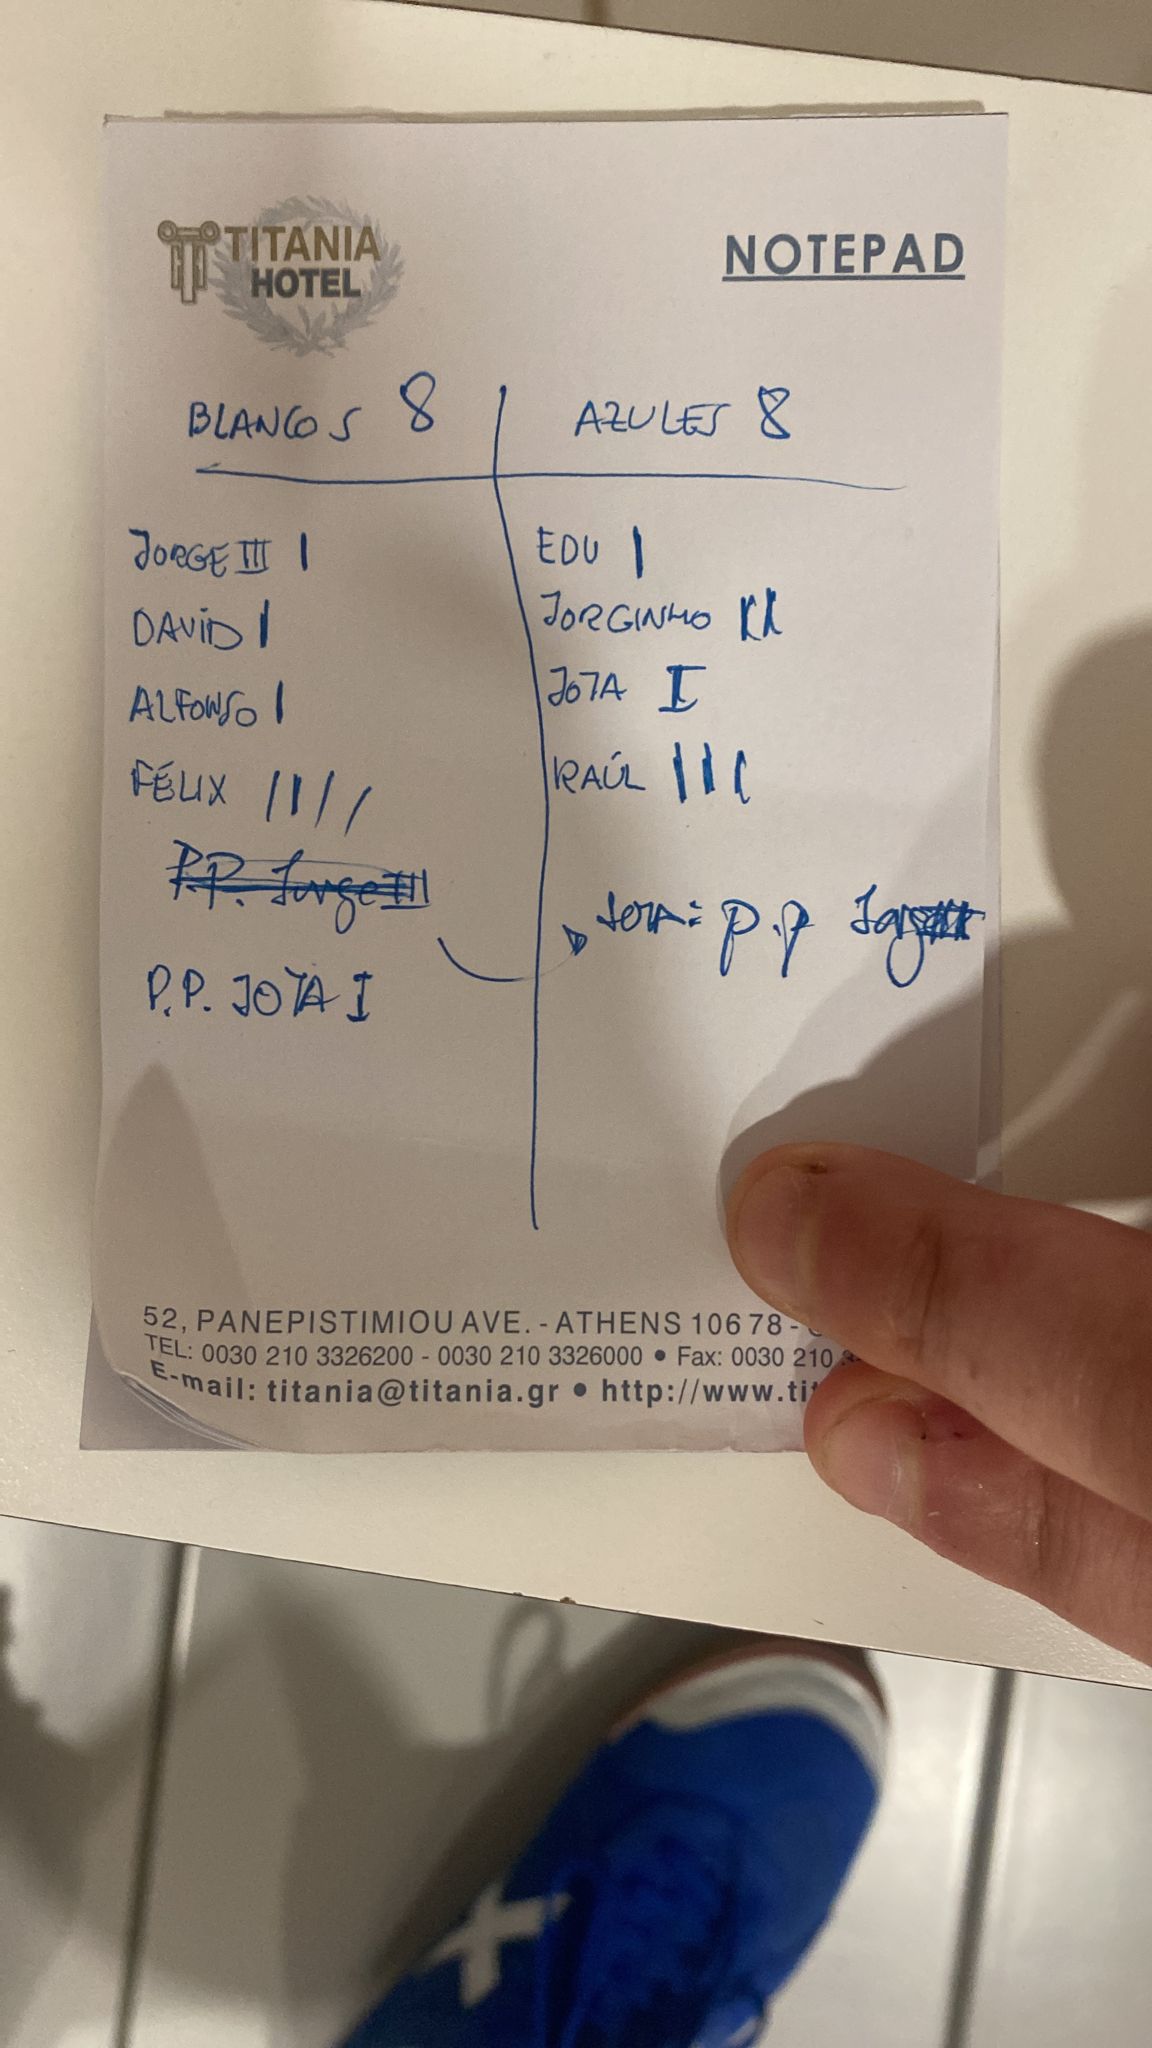 TITANIA
HOTEL
NOTEPAD
BLANCOS 8
AZULES 8
JORGE III I
DAVID I
ALFONSO I
FÉLIX IIII
P.P. Jorge III
P.P. JOTA I
EDU I
JORGINHO II
JOTA I
RAÚL III
JOTA: P.P
52, PANEPISTIMIOU AVE. - ATHENS 106 78 -
TEL: 0030 210 3326200 - 0030 210 3326000 • Fax: 0030 210
E-mail: titania@titania.gr • http://www.tit
X